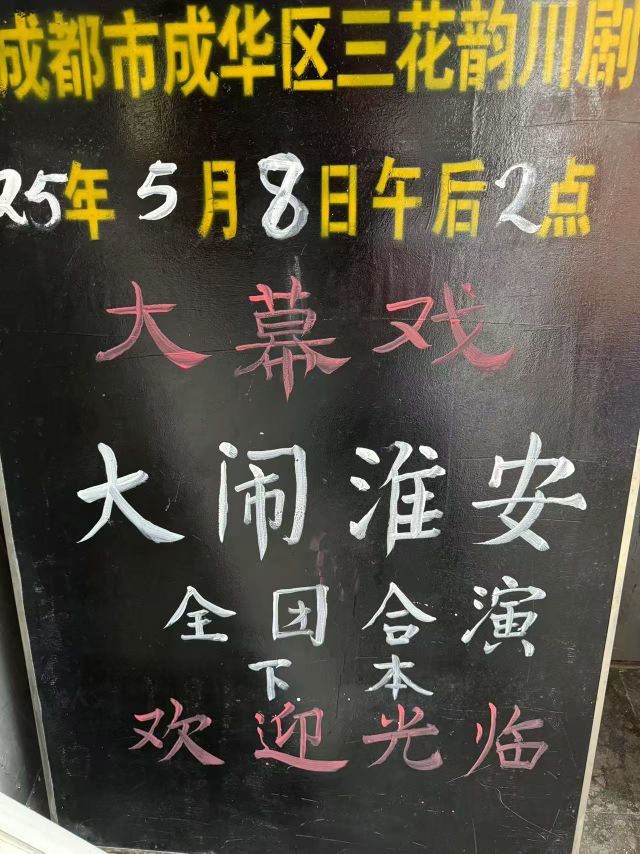 成都市成华区三花韵川剧
25年5月8日午后2点
大幕戏
大闹淮安
全团合演
下本
欢迎光临